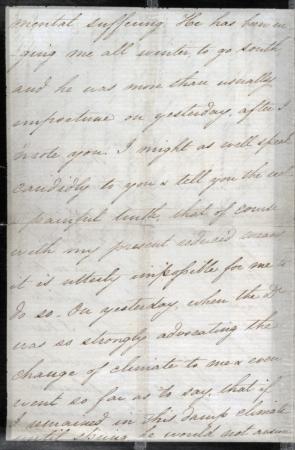 mental suffering. He has been ur
ging me all winter, to go south
and he was more than usually,
importune on yesterday, after I
wrote you. I might as well speak
candidly to you & tell you the
painful truth, that of course
with my present reduced means
it is utterly impossible for me to
do so. On yesterday, when the Dr
was so strongly advocating the
change of climate to me & even
went so far as to say, that if
I remained in this damp climate
until spring, he would not answer